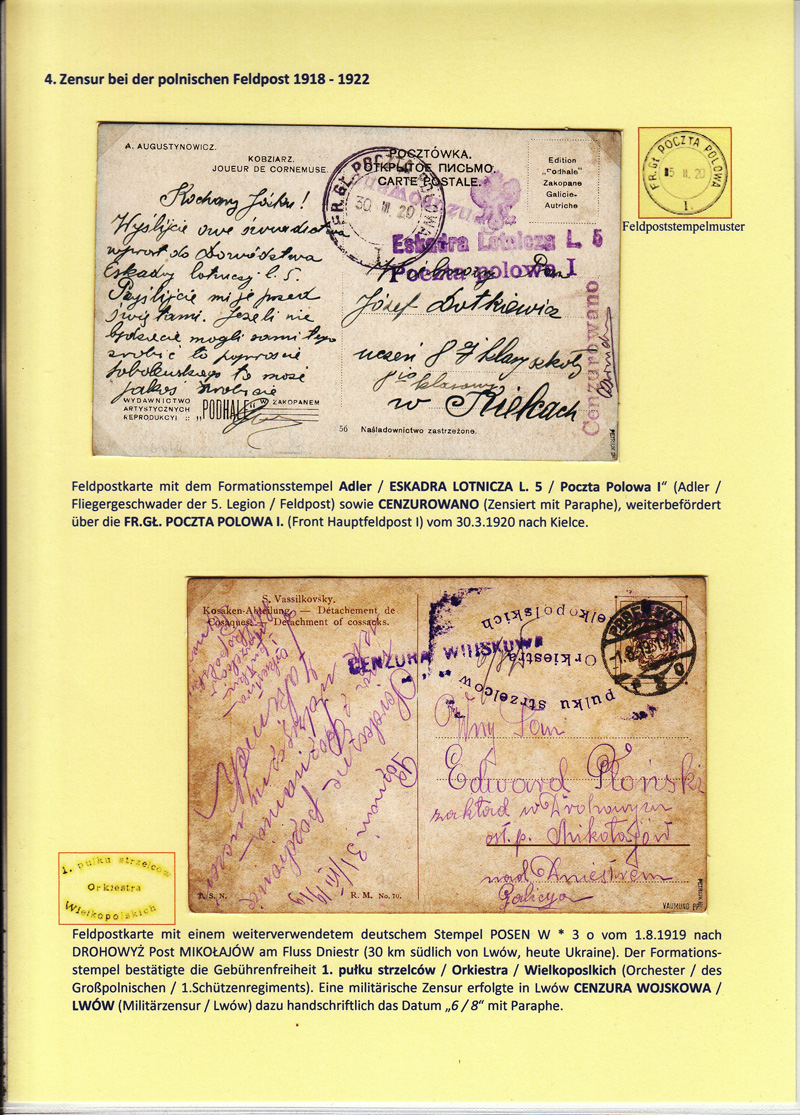 4. Zensur bei der polnischen Feldpost 1918 - 1922
A. AUGUSTYNOWICZ.
KOBZIARZ.
JOUEUR DE CORNEMUSE.
POCZTÓWKA.
ОТКРЫТОЕ ПИСЬМО.
CARTE POSTALE.
Edition
„Podhale"
Zakopane
Galicie-
Autriche
FR.GŁ. POCZTA POLOWA
30 III. 20
I.
Eskadra Lotnicza L. 5
Poczta polowa I
Cenzurowano
Kochany Józku!
Wyślijcie owe
wprost do Dowództwa
Eskadry lotniczej l. 5.
świętami. Jeżeli nie
będziecie mogli sami tego
zrobić to poproście
to może
jakoś
Pan
Józef Dutkiewicz
uczeń 8 klasy szkoły
8io klasowej
w Kielcach
WYDAWNICTWO
ARTYSTYCZNYCH
REPRODUKCYI :: „PODHALE" W ZAKOPANEM
56 Naśladownictwo zastrzeżone.
FR.GŁ. POCZTA POLOWA
15 II. 20
1.
Feldpoststempelmuster
Feldpostkarte mit dem Formationsstempel Adler / ESKADRA LOTNICZA L. 5 / Poczta Polowa I“ (Adler /
Fliegergeschwader der 5. Legion / Feldpost) sowie CENZUROWANO (Zensiert mit Paraphe), weiterbefördert
über die FR.GŁ. POCZTA POLOWA I. (Front Hauptfeldpost I) vom 30.3.1920 nach Kielce.
S. Vassilkovsky.
Kosaken-Abteilung. — Détachement de
Cosaques. — Detachment of cossacks.
CENZURA WOJSKOWA
pulku strzelcow
Orkiestra
Wielkopolskich
6/8
Poznań 31/VII 19
Serdeczne pozdrowienie
Poznania
Wny Pan
Edward Płoński
zakład w Drohowyżu
ost. p. Mikołajów
nad Dniestrem
Galicya
T. S. N.
R. M. No. 70.
1. pulku strzelcow
Orkiestra
Wielkopolskich
Feldpostkarte mit einem weiterverwendetem deutschem Stempel POSEN W * 3 o vom 1.8.1919 nach
DROHOWYŻ Post MIKOŁAJÓW am Fluss Dniestr (30 km südlich von Lwów, heute Ukraine). Der Formations-
stempel bestätigte die Gebührenfreiheit 1. pułku strzelców / Orkiestra / Wielkoposlkich (Orchester / des
Großpolnischen / 1.Schützenregiments). Eine militärische Zensur erfolgte in Lwów CENZURA WOJSKOWA /
LWÓW (Militärzensur / Lwów) dazu handschriftlich das Datum „6 / 8“ mit Paraphe.